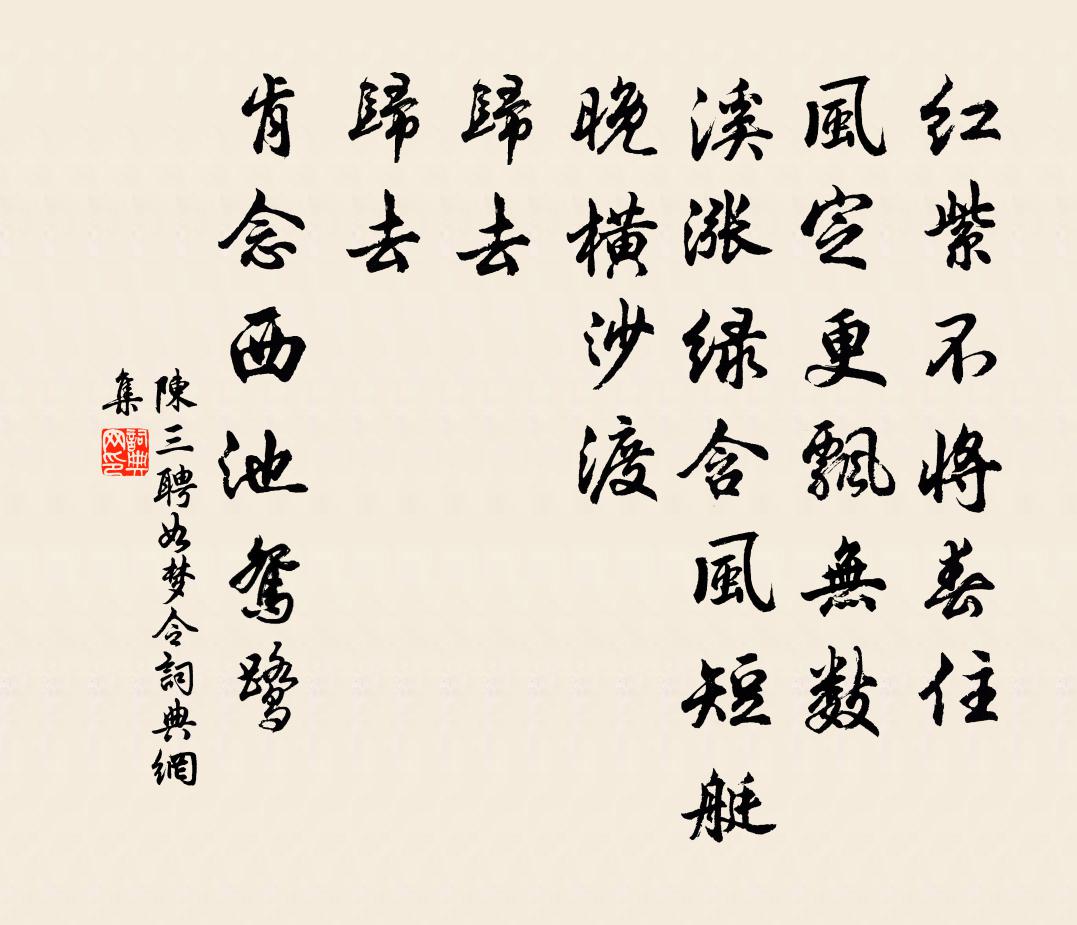 紅紫不將春住
風定更飄無數
溪漲綠含風短艇
晚橫沙渡
歸去
歸去
肯念西池鴛鷺
陳三聘如梦令詞典網
集
詞典網印